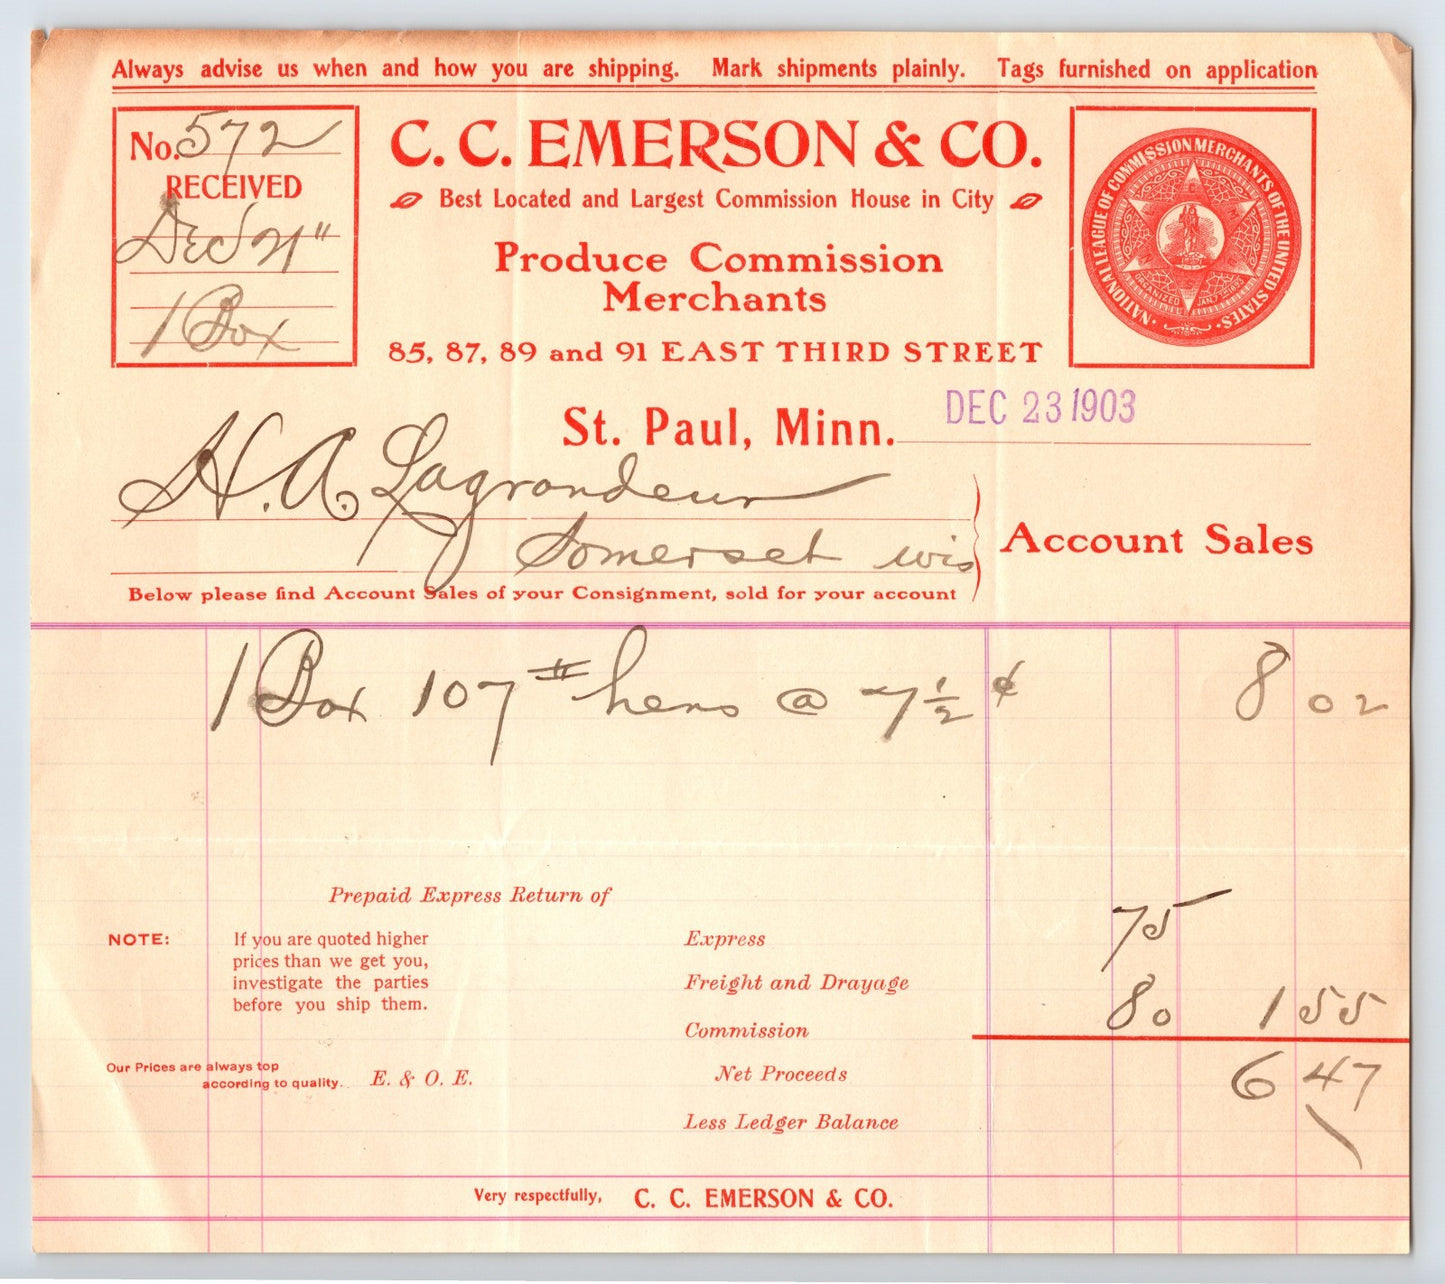 Always advise us when and how you are shipping. Mark shipments plainly. Tags furnished on application
No. 572
RECEIVED
Dec 21"
1 Box
C. C. EMERSON & CO.
Best Located and Largest Commission House in City
Produce Commission
Merchants
85, 87, 89 and 91 EAST THIRD STREET
NATIONAL LEAGUE OF COMMISSION MERCHANTS OF THE UNITED STATES
ORGANIZED JAN. 1893
St. Paul, Minn. DEC 23 1903
H. A. Lagrandeur
Somerset Wis
Account Sales
Below please find Account Sales of your Consignment, sold for your account
1 Box 107 # hens @ 7 1/2 ¢ 8 02
Prepaid Express Return of
NOTE: If you are quoted higher
prices than we get you,
investigate the parties
before you ship them.
Express 75
Freight and Drayage
Commission 80 1 55
Our Prices are always top
according to quality. E. & O. E.
Net Proceeds 6 47
Less Ledger Balance
Very respectfully, C. C. EMERSON & CO.